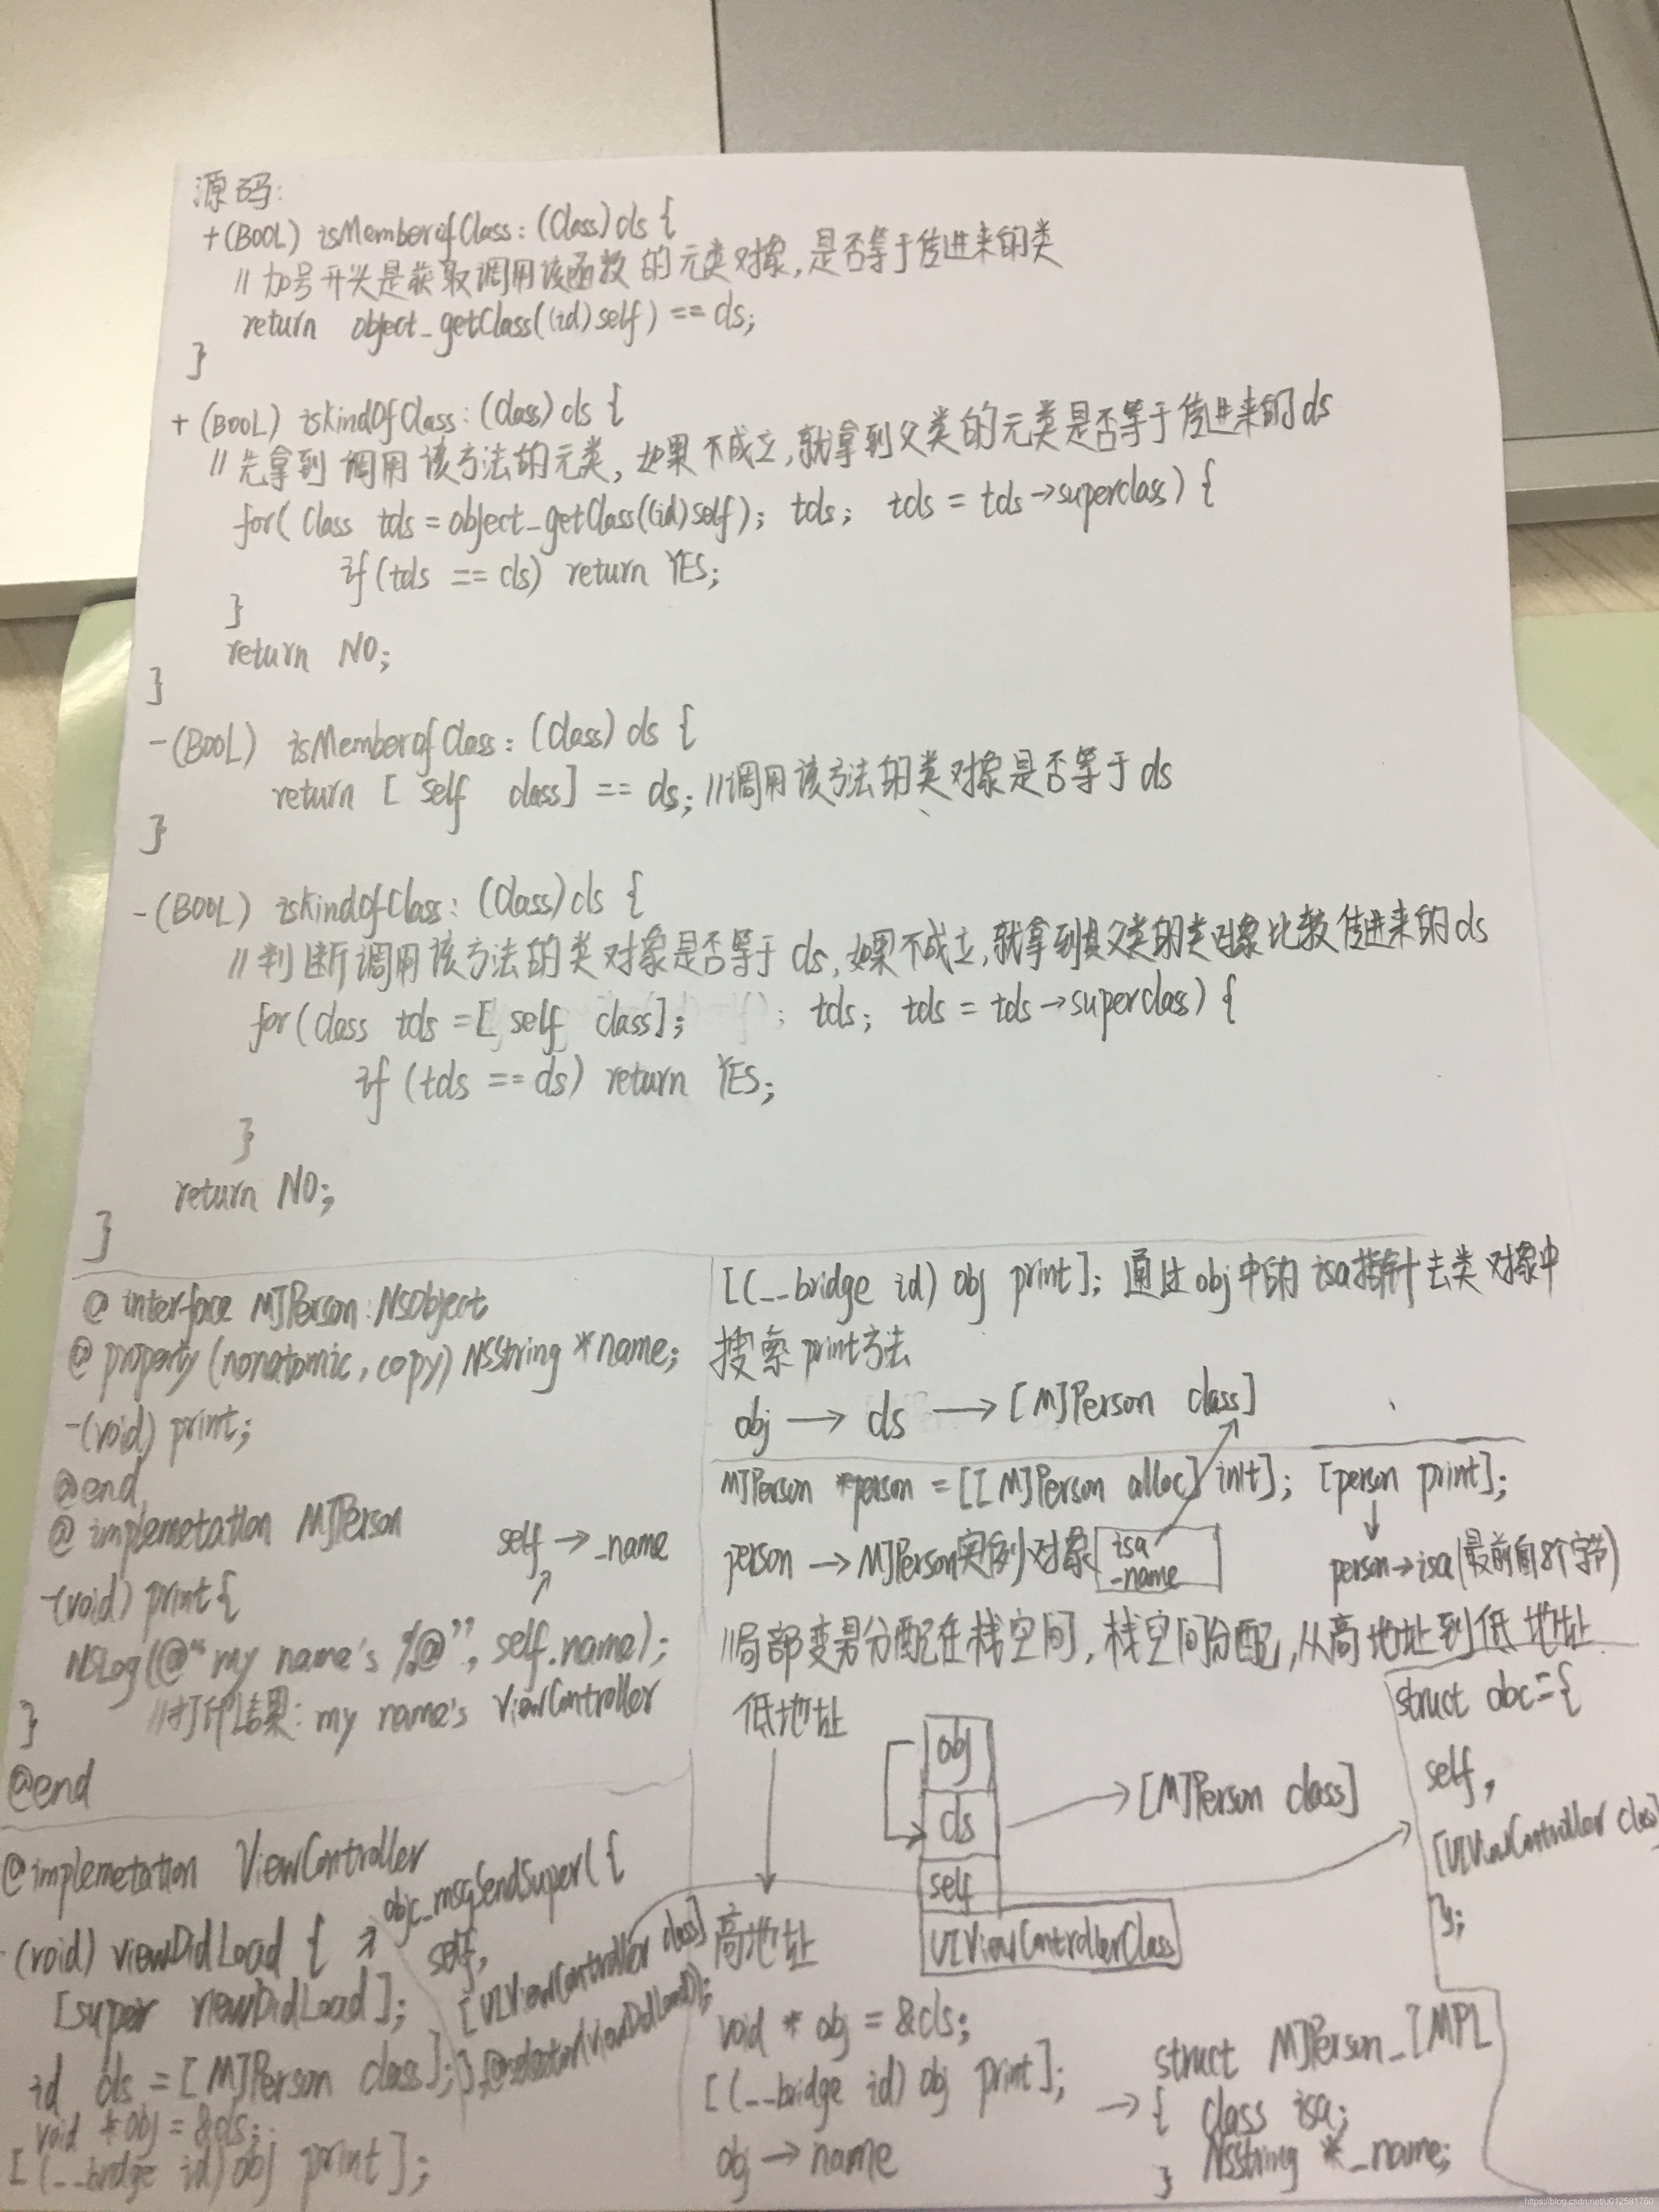 源码:
+(BOOL) isMemberofClass: (Class) cls {
// 加号开头是获取调用该函数的元类对象,是否等于传进来的类
return object_getClass((id)self) == cls;
}
+ (BOOL) isKindOfClass: (Class) cls {
// 先拿到调用该方法的元类, 如果不成立,就拿到父类的元类是否等于传进来的cls
for( Class tcls = object_getClass((id)self); tcls; tcls = tcls→superclass) {
if (tcls == cls) return YES;
}
return NO;
}
-(BOOL) isMemberofClass: (Class) cls {
return [ self class] == cls; //调用该方法的类对象是否等于cls
}
-(BOOL) isKindOfClass: (Class) cls {
// 判断调用该方法的类对象是否等于 cls,如果不成立,就拿到其父类的类对象比较传进来的cls
for (class tcls = [ self class]; tcls; tcls = tcls→superclass) {
if (tcls == cls) return YES;
}
return NO;
}
@ interface MJPerson: NSObject
@ property (nonatomic, copy) NSString *name;
-(void) print;
@end
@ implemetation MJPerson
self → _name
-(void) print {
NSLog(@"my name's %@", self.name);
//打印结果: my name's ViewController
}
@end
@implemetation ViewController
-(void) viewDidLoad { → objc_msgSendSuper({
self,
[UIViewController class]
}, @selector(viewDidLoad));
[super viewDidLoad];
id cls = [MJPerson class];
void *obj = &cls;
[(__bridge id) obj print];
[(__bridge id) obj print]; 通过obj中的isa指针去类对象中
搜索print方法
obj → cls → [MJPerson class]
MJPerson *person = [[MJPerson alloc] init]; [person print];
person → MJPerson实例对象 isa
_name
person→isa(最前面8个字节)
//局部变量分配在栈空间, 栈空间分配,从高地址到低地址
低地址
obj
cls → [MJPerson class]
self
UIViewControllerClass
高地址
struct abc={
self,
[UIViewController class]
};
void * obj = &cls;
[(__bridge id) obj print];
obj → name
→ struct MJPerson_IMPL
{ class isa;
NSString *_name;
}
https://blog.csdn.net/u012581760